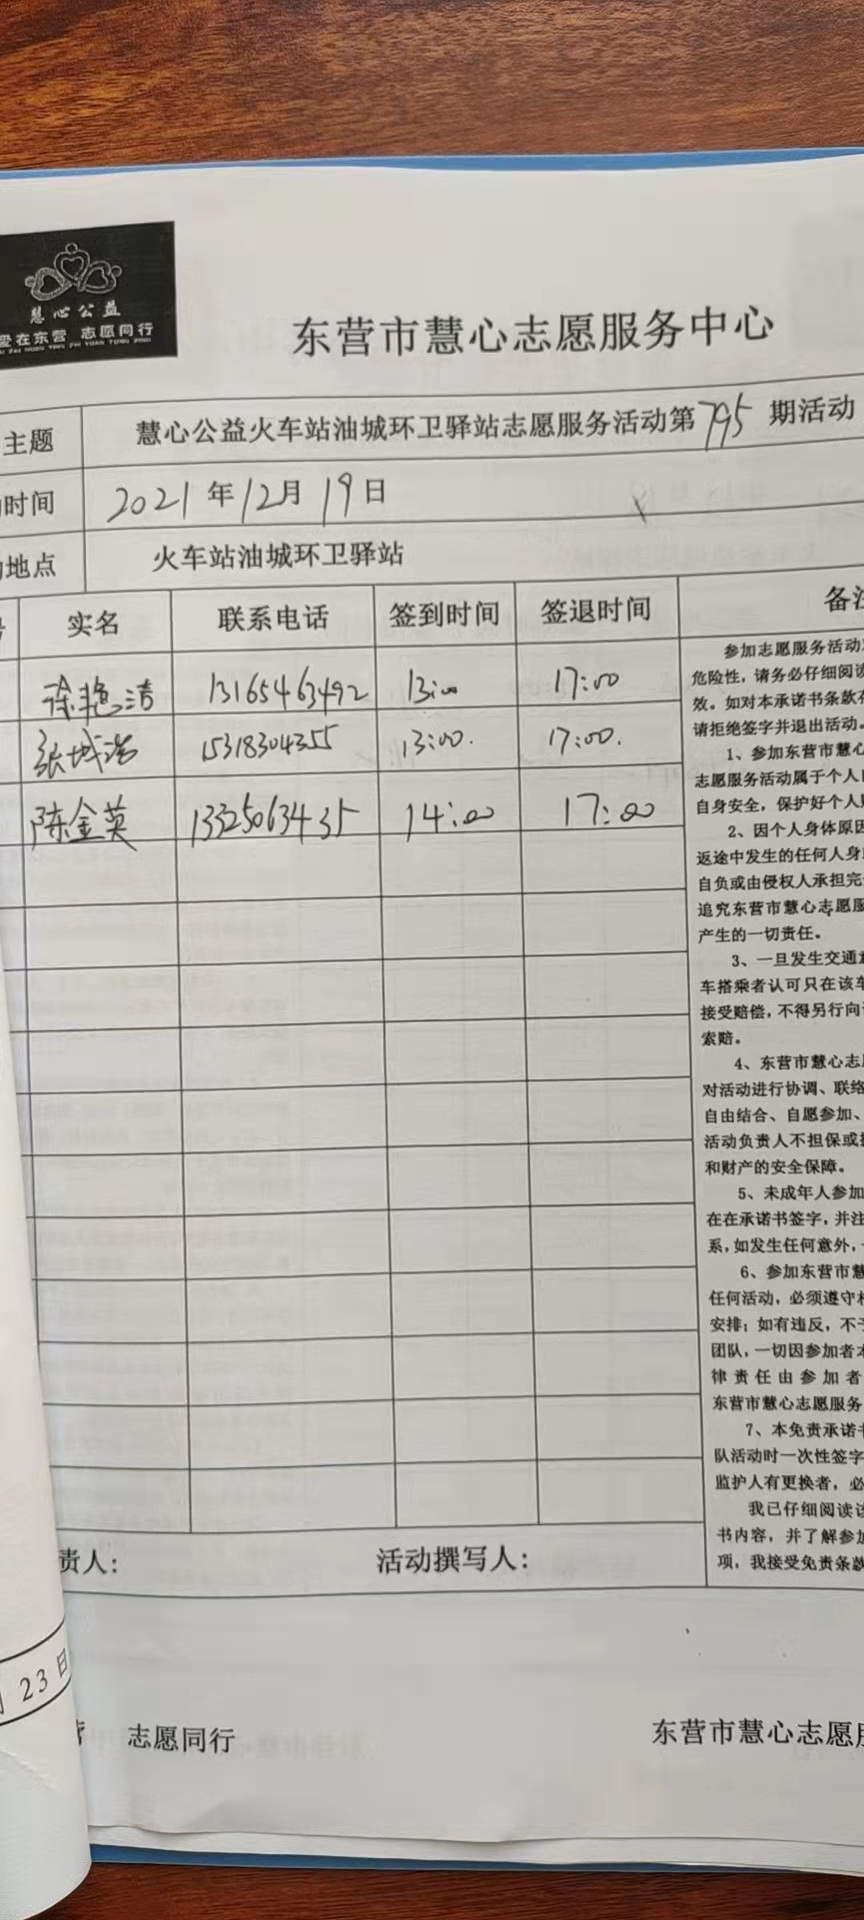 慧心公益
爱在东营 志愿同行
东营市慧心志愿服务中心
主题 慧心公益火车站油城环卫驿站志愿服务活动第795期活动
时间 2021年12月19日
地点 火车站油城环卫驿站
实名 联系电话 签到时间 签退时间 备注
徐艳洁 13165463492 13:00 17:00
张城浩 15318304355 13:00. 17:00.
陈金英 13325063435 14:00 17:00
参加志愿服务活动
危险性，请务必仔细阅读
效。如对本承诺书条款
请拒绝签字并退出活动。
1、参加东营市慧心
志愿服务活动属于个人
自身安全，保护好个人
2、因个人身体原因
返途中发生的任何人身
自负或由侵权人承担完
追究东营市慧心志愿服
产生的一切责任。
3、一旦发生交通
车搭乘者认可只在该车
接受赔偿，不得另行向
索赔。
4、东营市慧心志
对活动进行协调、联络
自由结合、自愿参加、
活动负责人不担保或
和财产的安全保障。
5、未成年人参加
在在承诺书签字，并注
系，如发生任何意外，
6、参加东营市慧
任何活动，必须遵守
安排；如有违反，不
团队，一切因参加者本
律责任由参加者
东营市慧心志愿服务
7、本免责承诺书
队活动时一次性签字
监护人有更换者，必
我已仔细阅读该
书内容，并了解参加
项，我接受免责条款
责人： 活动撰写人：
23日
营 志愿同行 东营市慧心志愿服